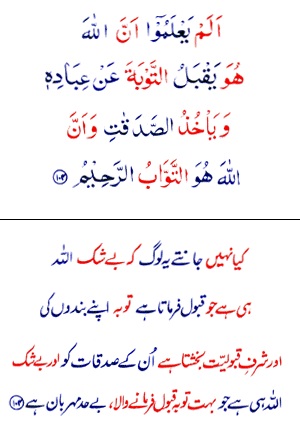 اَلَمْ يَعْلَمُوْۤا اَنَّ اللّٰهَ
هُوَ يَقْبَلُ التَّوْبَةَ عَنْ عِبَادِهٖ
وَ يَاْخُذُ الصَّدَقٰتِ وَ اَنَّ
اللّٰهَ هُوَ التَّوَّابُ الرَّحِيْمُ ۝۱۰۴
کیا نہیں جانتے یہ لوگ کہ بے شک اللہ
ہی ہے جو قبول فرماتا ہے توبہ اپنے بندوں کی
اور شرفِ قبولیّت بخشتا ہے اُن کے صدقات کو اور بے شک
اللہ ہی ہے جو بہت توبہ قبول فرمانے والا، بے حد مہربان ہے ۝۱۰۴